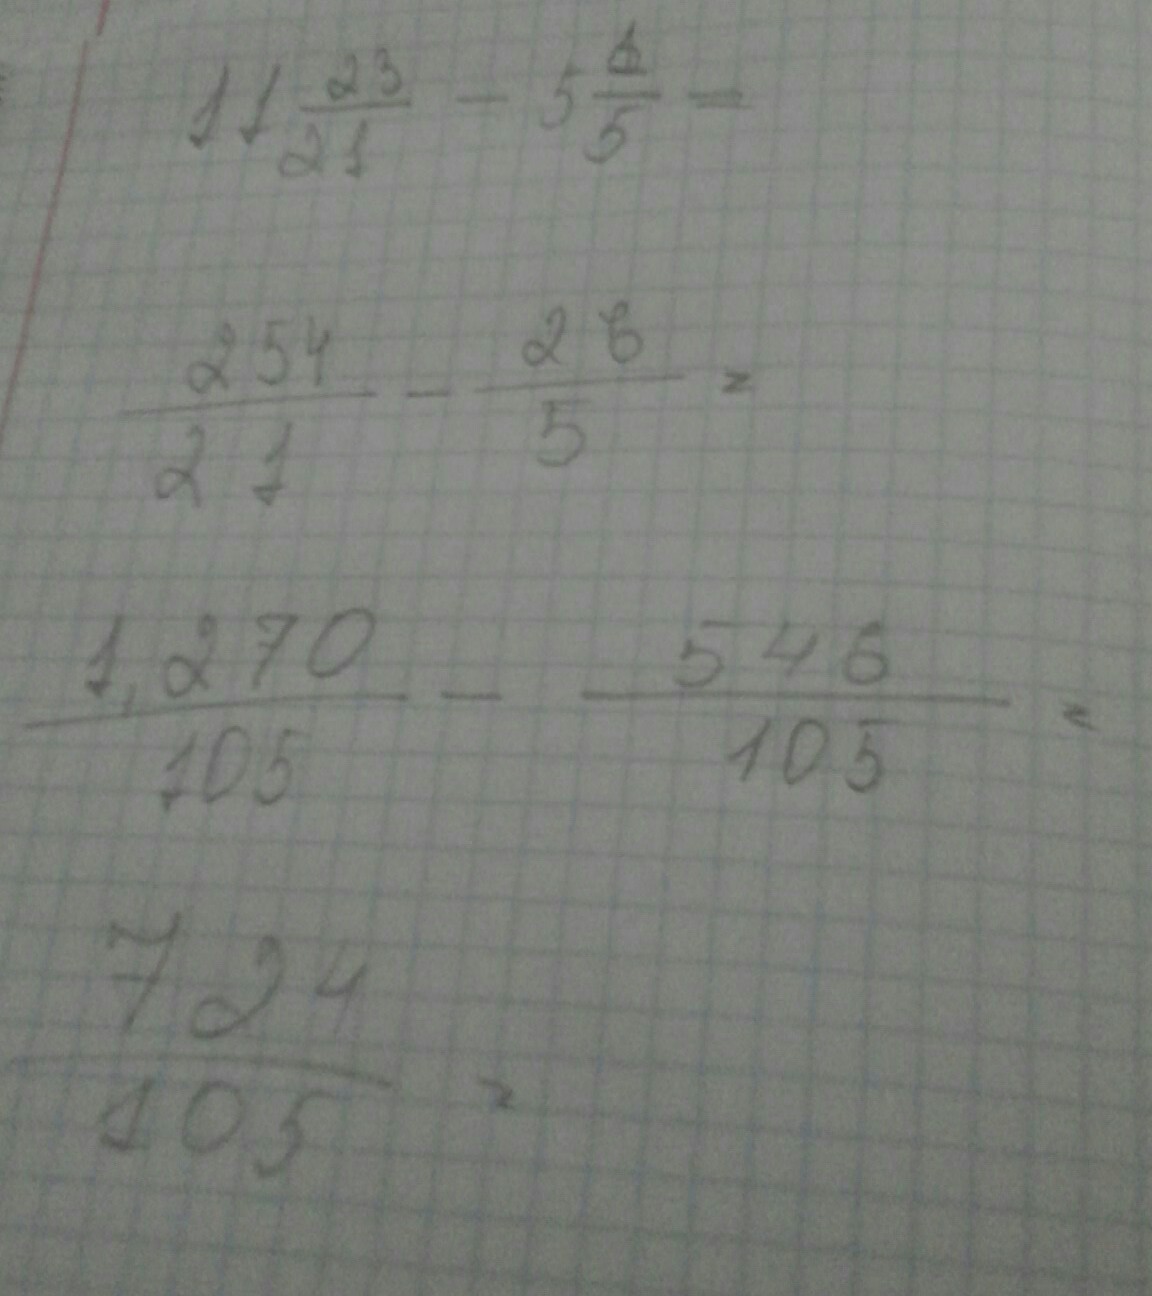 11 23/21 - 5 1/5 =
254/21 - 26/5 =
1,270/105 - 546/105 =
724/105 =